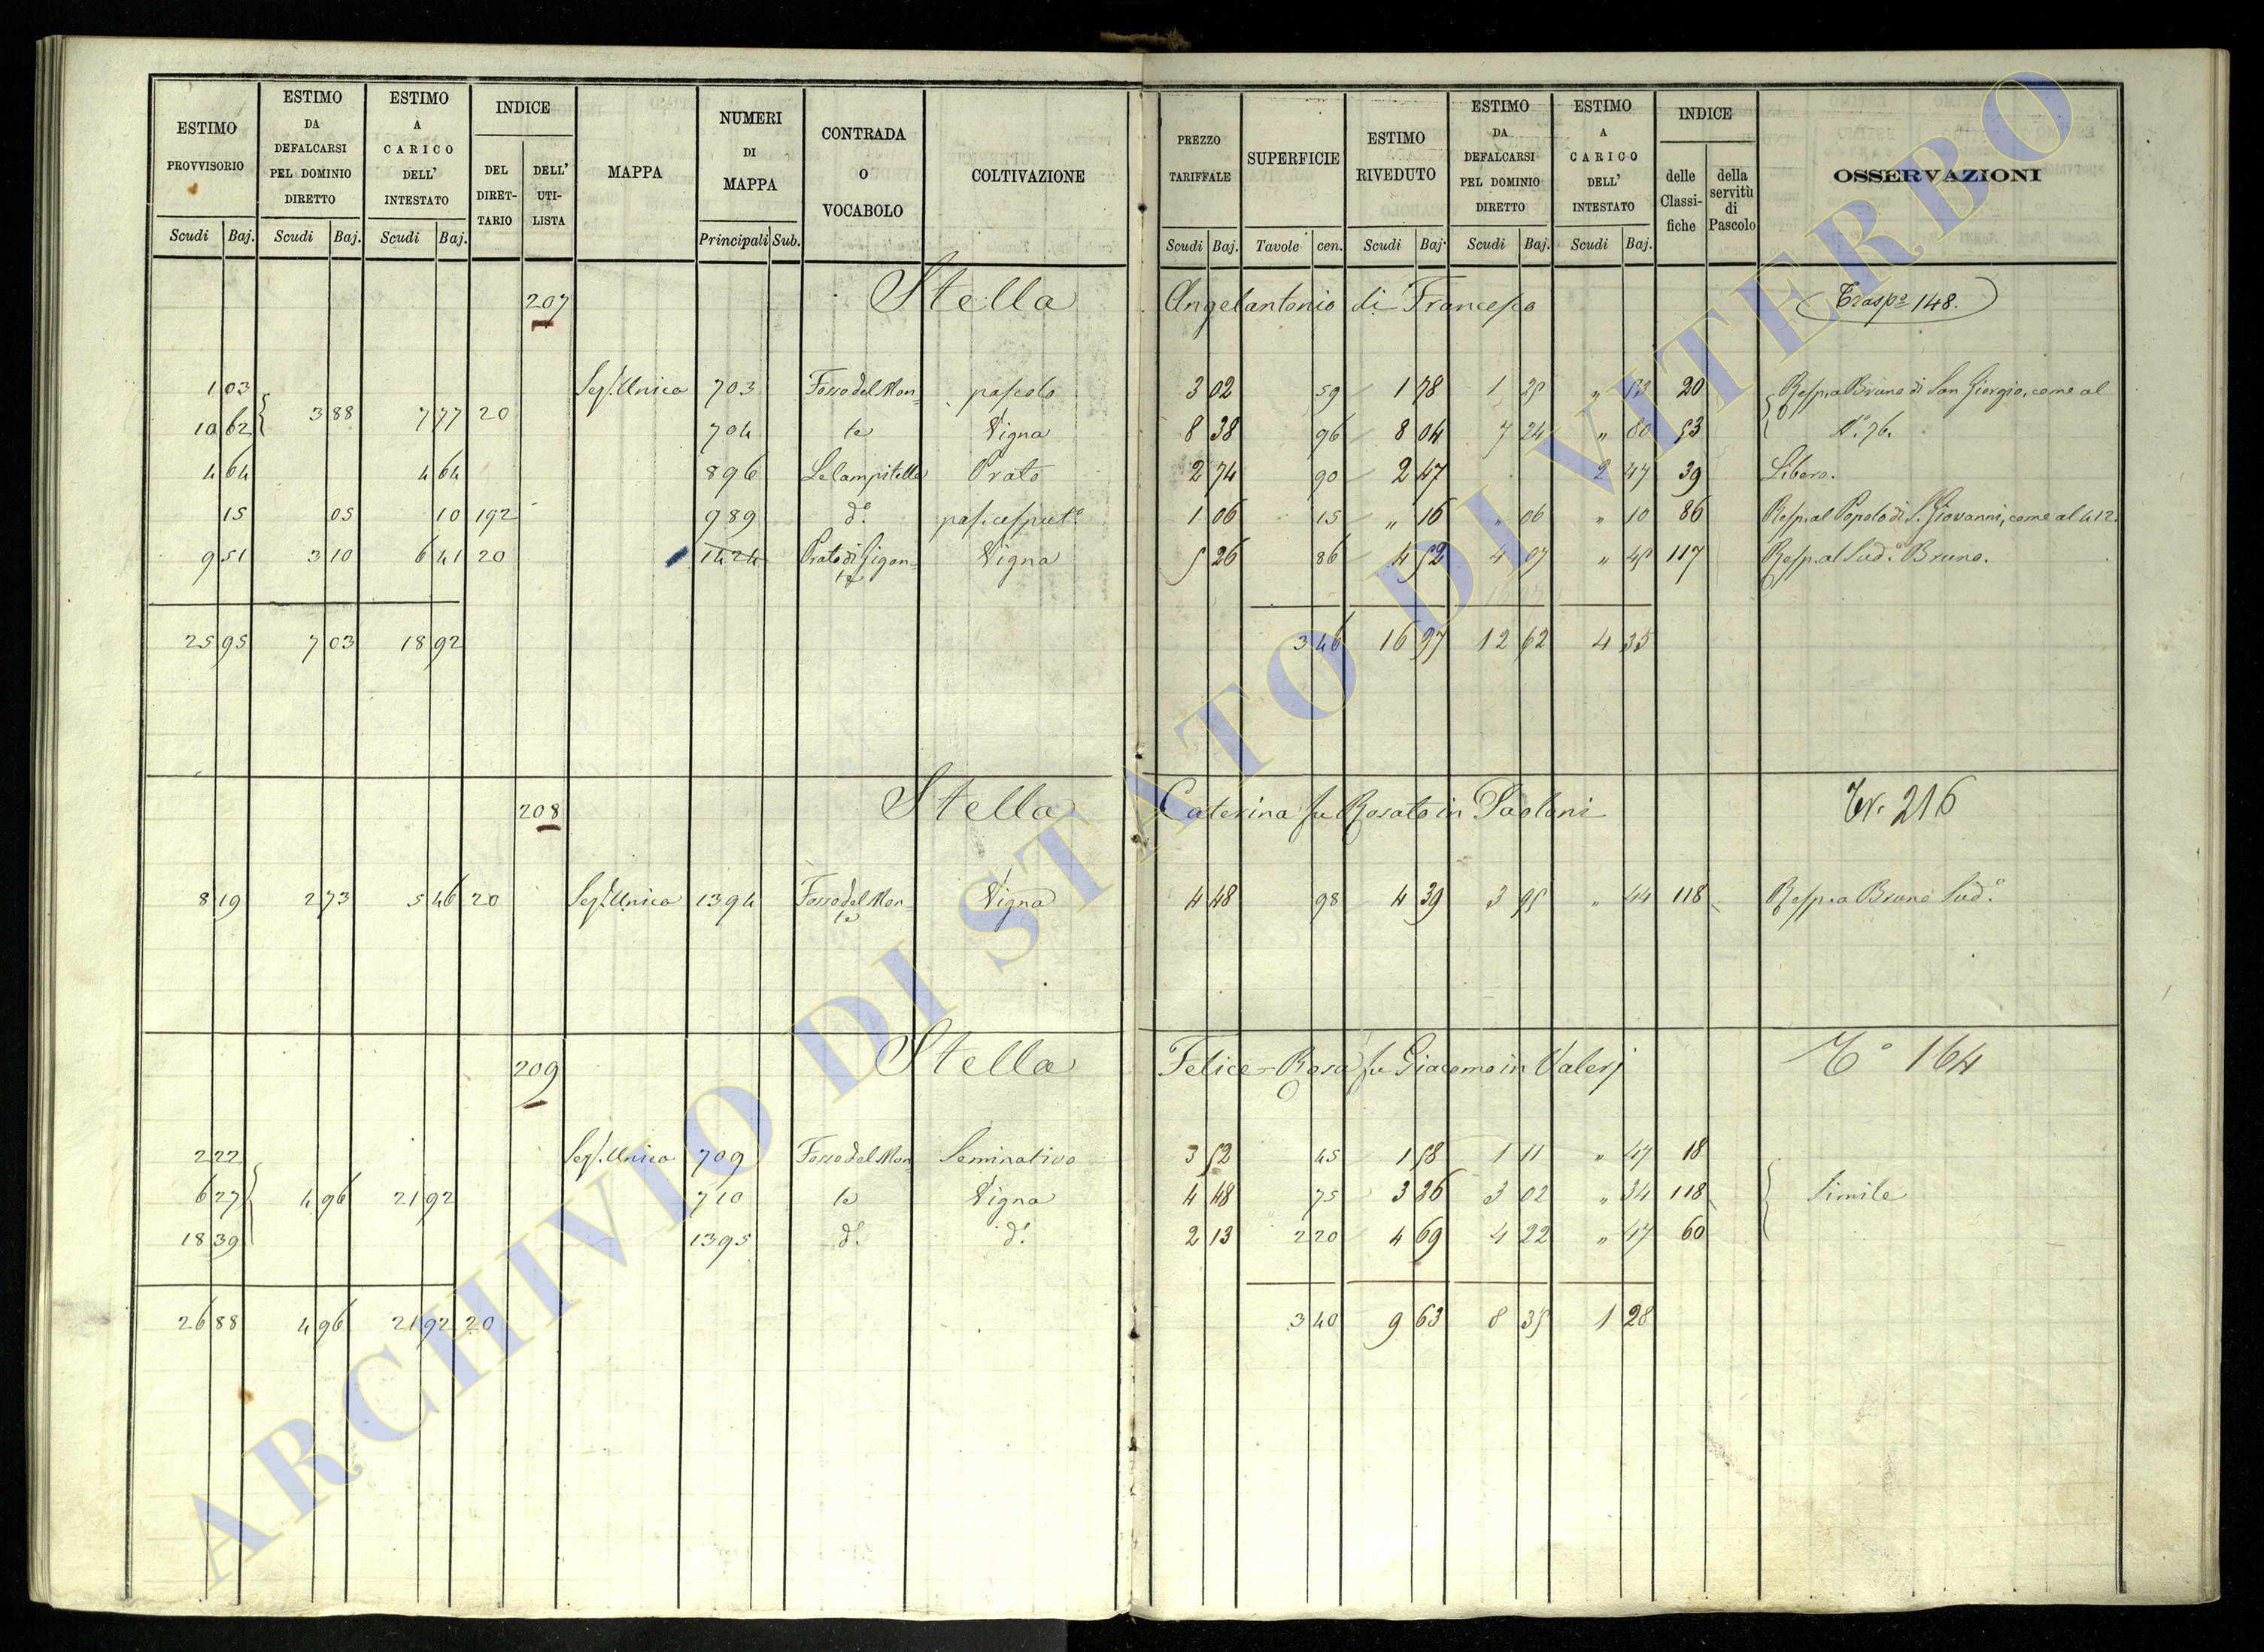 ESTIMO PROVVISORIO Scudi Baj.
ESTIMO DA DEFALCARSI PEL DOMINIO DIRETTO Scudi Baj.
ESTIMO A CARICO DELL' INTESTATO Scudi Baj.
INDICE DEL DIRET-TARIO DELL' UTI-LISTA
MAPPA
NUMERI DI MAPPA Principali Sub.
CONTRADA O VOCABOLO
COLTIVAZIONE
PREZZO TARIFFALE Scudi Baj.
SUPERFICIE Tavole cen.
ESTIMO RIVEDUTO Scudi Baj.
ESTIMO DA DEFALCARSI PEL DOMINIO DIRETTO Scudi Baj.
ESTIMO A CARICO DELL' INTESTATO Scudi Baj.
INDICE delle Classi-fiche della servitù di Pascolo
OSSERVAZIONI
207 Stella Angelantonio di Francesco Trasp.º 148.
1 03 Sez. Unica 703 Fosso del Mon= pascolo 3 02 59 1 78 1 25 " 53 20 Resp. a Bruno di San Giorgio, come al
10 62 3 88 7 77 20 704 te Vigna 8 38 96 8 04 7 24 " 80 53 N.º 76.
4 64 4 64 896 Le Campitelle Prato 2 74 90 2 47 2 47 39 Libero.
15 05 10 192 989 d.º pas. cesput.º 1 06 15 " 16 " 06 " 10 86 Resp. al Popolo di S. Giovanni, come al 412.
9 51 3 10 6 41 20 1424 Prato di Gigan=te Vigna 5 26 86 4 52 4 07 " 45 117 Resp. al Sud.º Bruno.
25 95 7 03 18 92 3 46 16 97 12 62 4 35
208 Stella Caterina fu Rosato in Paoloni Tr. 216
8 19 2 73 5 46 20 Sez. Unica 1394 Fosso del Mon=te Vigna 4 48 98 4 39 3 95 " 44 118 Resp. a Bruno Sud.º
209 Stella Felice=Rosa fu Giacomo in Valerj T.º 164
2 22 Sez. Unica 709 Fosso del Mon Seminativo 3 52 45 1 58 1 11 " 47 18
6 27 4 96 21 92 710 te Vigna 4 48 75 3 36 3 02 " 34 118 Simile
18 39 1395 d.º d.º 2 13 2 20 4 69 4 22 " 47 60
26 88 4 96 21 92 20 3 40 9 63 8 35 1 28
ARCHIVIO DI STATO DI VITERBO